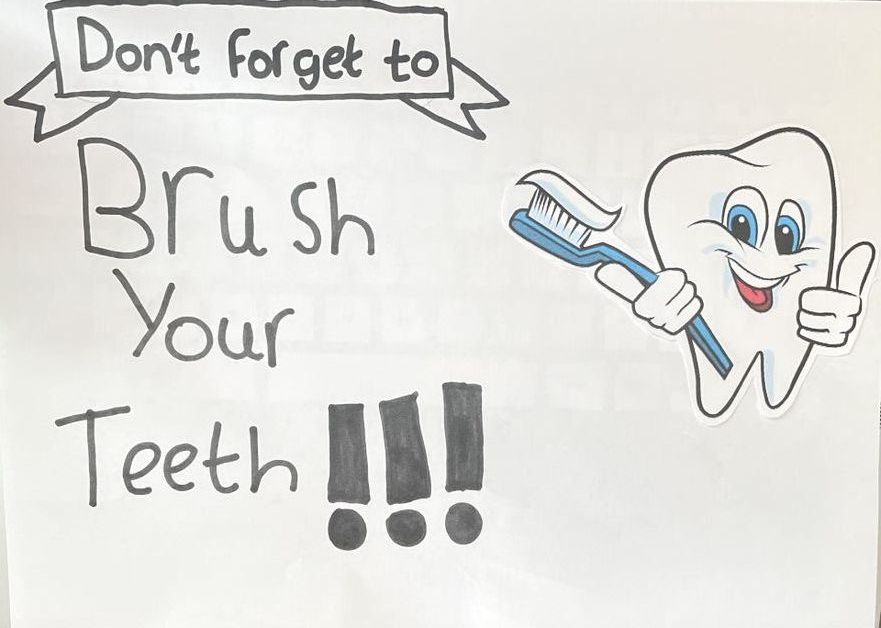 Don't forget to
Brush
Your
Teeth !!!